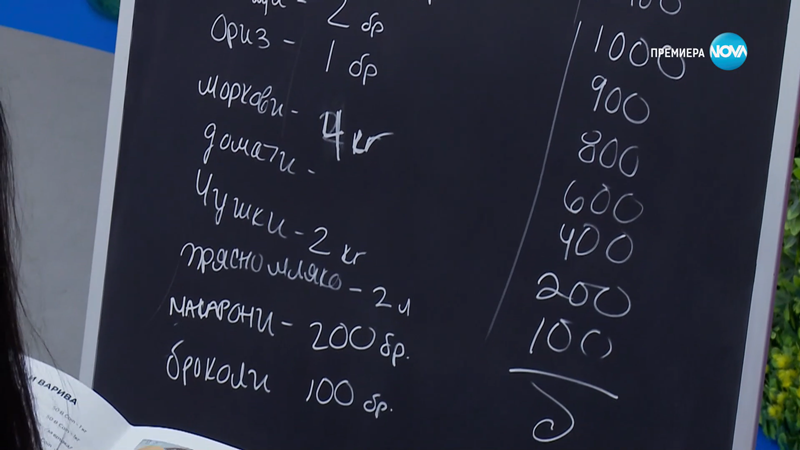 2 бр
Ориз - 1 бр
моркови - 4 кг
домати -
Чушки - 2 кг
прясно мляко - 2 л
макарони - 200 бр.
броколи 100 бр.
1000
900
800
600
400
200
100
ПРЕМИЕРА NOVA
И ВАРИВА